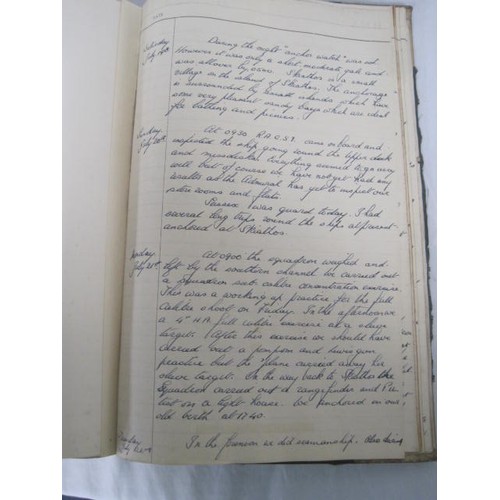 Saturday
July 19th
During the night "anchor watch" was set.
However it was only a short moderate gale and
was allover by 0200. Skiathos is a small
village on the island of Skiathos. The anchorage
is surrounded by small islands which have
some very pleasant sandy bays which are ideal
for bathing and picnics.
Sunday
July 20th
At 0930 R.A.C.S.1. came on board and
inspected the ship going round the upper deck
and messdecks. Everything seemed to go very
well but of course we have not yet had any
results as the Admiral has yet to inspect our
state rooms and flats.
was guard today. I had
several long trips round the ships at present
anchored at Skiathos.
Monday
July 21st
At 0900 the squadron weighed and
left by the southern channel. We carried out
a squadron sub calibre concentration exercise.
This was a working up practice for the full
calibre shoot on Friday. In the afternoon
a 4" H.A. full calibre exercise at a sleeve
target. After this exercise we should have
carried out a pompom and
practice but the 'plane carried away his
sleeve target. On the way back to Skiathos the
squadron carried out a rangefinder and
test on a light house. We anchored in our
old berth at 1740.
Tuesday
July 22nd
In the forenoon we did seamanship. also being